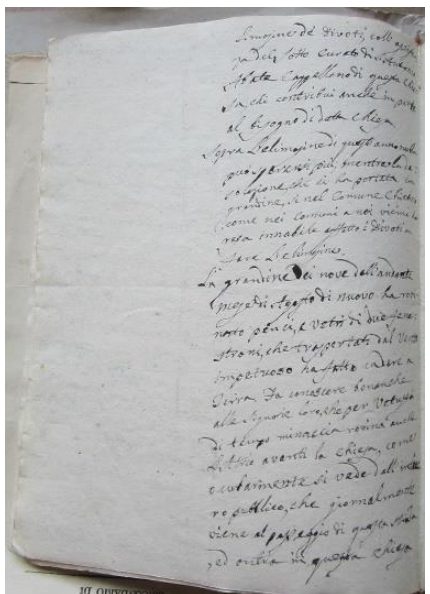 Limosine de' Divoti, coll'
del Sotto Curato di
Abate Cappellano di questa Chie-
sa, chi contribuì anche in parte
al bisogno di detta Chiesa
Sopra L'elimosine di quest'anno non
può sperarsi più, mentre la de-
solazione, che ci ha portata la
grandine, si nel Comune
come nei Comuni a noi vicini ha
resa innabile affatto i Divoti a
fare L'elimosine.
La grandine dei nove dell'andante
mese di Aggosto di nuovo ha
e vetri di due fene-
stroni, che trasportati dal vento
impetuoso ha fatto cadere a
terra. Fa conoscere benanche
alle Signorie loro, che per vetustà
di tempo minaccia rovina anche
L'Atrio avanti la Chiesa, come
ocularmente si vede dall'
ro pubblico, che giornalmente
viene al passeggio di questa strada
ed entra in questa Chiesa